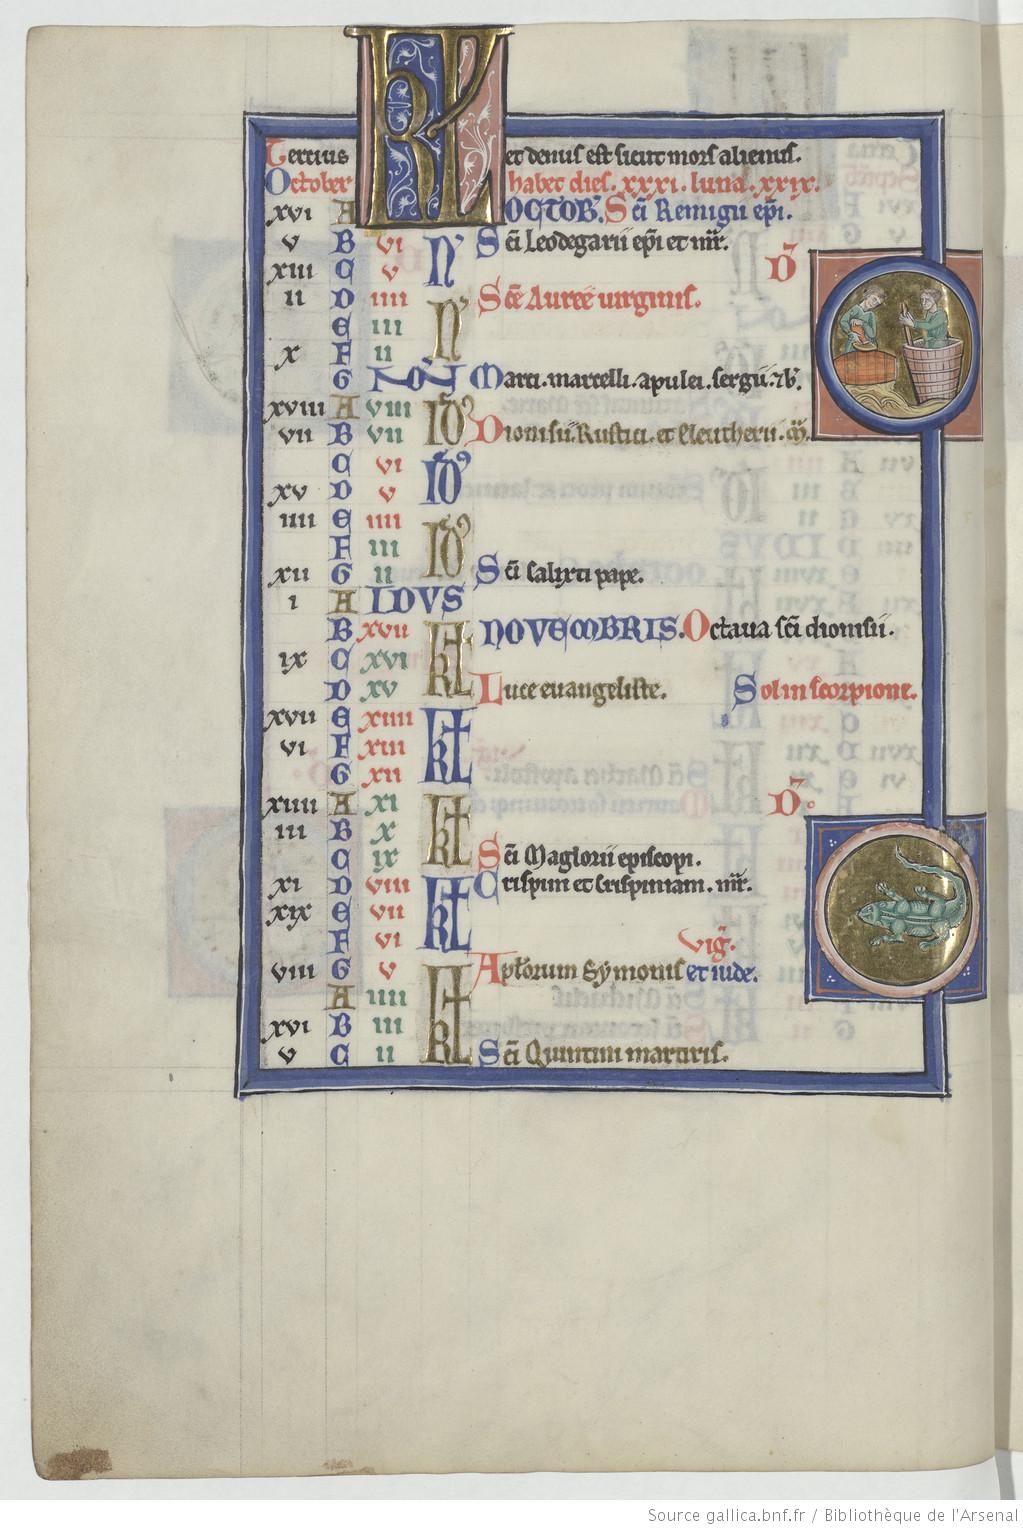 Tercius KL et denus est sicut mors alienus.
October habet dies. xxxi. luna. xxix.
xvi A OCTOB'. Sc̄i Remigii ep̄i.
v B vi N' Sc̄i Leodegarii ep̄i et mr̄.
xiii C v D̄
ii D iiii N' Sc̄e Auree uirginis.
E iii
x F ii
G NON Marci. marcelli. apulei. sergii. ⁊ b'.
xviii A viii ID'
vii B vii Dionisii. Rustici. et Eleutherii. m̄.
C vi ID'
xv D v
iiii E iiii ID'
F iii
xii G ii Sc̄i Calixti pape.
i A IDVS
B xvii KL NOVEMBRIS. Octaua sc̄i dionisii.
ix C xvi
D xv Luce euangeliste. Sol in scorpione.
xvii E xiiii KL
vi F xiii
G xii
xiiii A xi KL D̄.
iii B x
C ix Sc̄i Maglorii episcopi.
xi D viii KL Crispini et Crispiniani. mr̄.
xix E vii
F vi Viḡ.
viii G v KL Apl̄orum Symonis et iude.
A iiii
xvi B iii
v C ii Sc̄i Quintini martiris.
Source gallica.bnf.fr / Bibliothèque de l'Arsenal